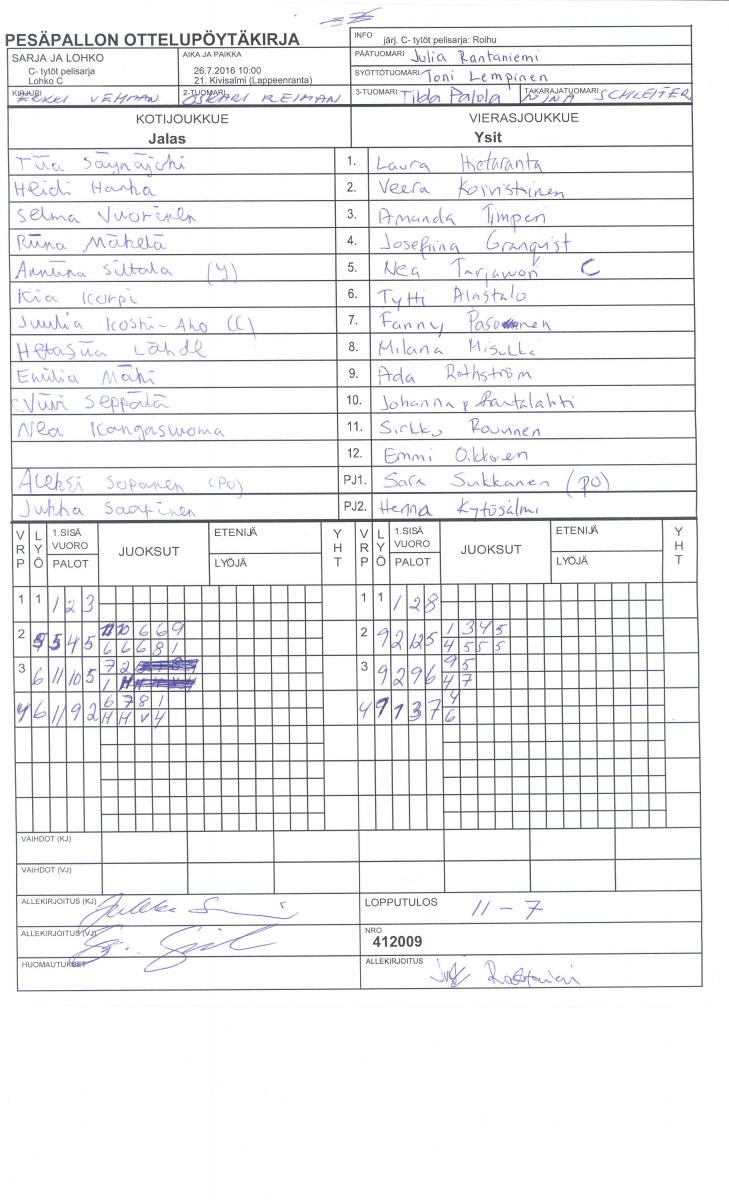 PESÄPALLON OTTELUPÖYTÄKIRJA
INFO järj. C- tytöt pelisarja: Roihu
SARJA JA LOHKO
C- tytöt pelisarja
Lohko C
AIKA JA PAIKKA
26.7.2016 10:00
21. Kivisalmi (Lappeenranta)
PÄÄTUOMARI Julia Rantaniemi
SYÖTTÖTUOMARI Toni Lempinen
KIRJURI VEHMAN
2-TUOMARI OSKARI REIMAN
3-TUOMARI Tilda Palola
TAKARAJATUOMARI NINA SCHLEITER
KOTIJOUKKUE
Jalas
VIERASJOUKKUE
Ysit
Tiia Säynäjoki 1. Laura Hietaranta
Heidi Hanka 2. Veera Koivistoinen
Selma Vuorinen 3. Amanda Timperi
Riina Mäkelä 4. Josefiina Granqvist
Anniina Siltala 5. Nea C
Kia Korpi 6. Tytti Alastalo
Juulia Koski-Aho (C) 7. Fanny
Lähde 8. Milana
Emilia Mäki 9. Ada Rothström
Viivi Seppälä 10. Johanna Rantalahti
Nea Kangasvuoma 11. Sirkku Rounnen
12. Emmi Oikkonen
Aleksi Sopanen (PO) PJ1. Sara Suikkanen (PO)
Jukka Saarinen PJ2. Henna Kytösalmi
VRP LYÖ 1.SISÄ VUORO PALOT JUOKSUT ETENIJÄ LYÖJÄ YHT VRP LYÖ 1.SISÄ VUORO PALOT JUOKSUT ETENIJÄ LYÖJÄ YHT
1 1 1 2 3 1 1 1 2 8
2 5 5 4 5 11 10 6 6 9 2 9 2 12 5 1 3 4 5
6 6 6 8 1 4 5 5 5
3 6 11 10 5 7 2 3 9 2 9 6 9 5
1 4 7
4 6 11 9 2 6 7 8 1 4 9 1 3 7 4
H H V 4 6
VAIHDOT (KJ)
VAIHDOT (VJ)
ALLEKIRJOITUS (KJ)
LOPPUTULOS 11 - 7
ALLEKIRJOITUS (VJ)
NRO
412009
HUOMAUTUKSET
ALLEKIRJOITUS